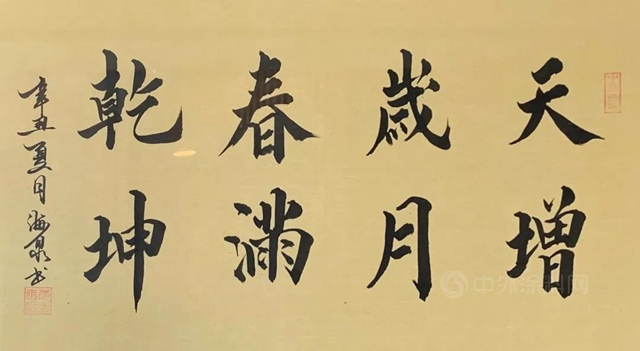 天增
歲月
春滿
乾坤
辛丑夏月海泉书
中外涂料网